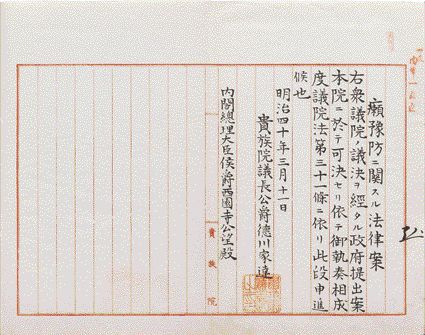 癩豫防ニ関スル法律案
右衆議院ノ議決ヲ經タル政府提出案
本院ニ於テ可決セリ依テ御執奏相成
度議院法第三十一條ニ依リ此段申進
候也
明治四十年三月十一日
貴族院議長公爵德川家達
内閣總理大臣侯爵西園寺公望殿
貴族院